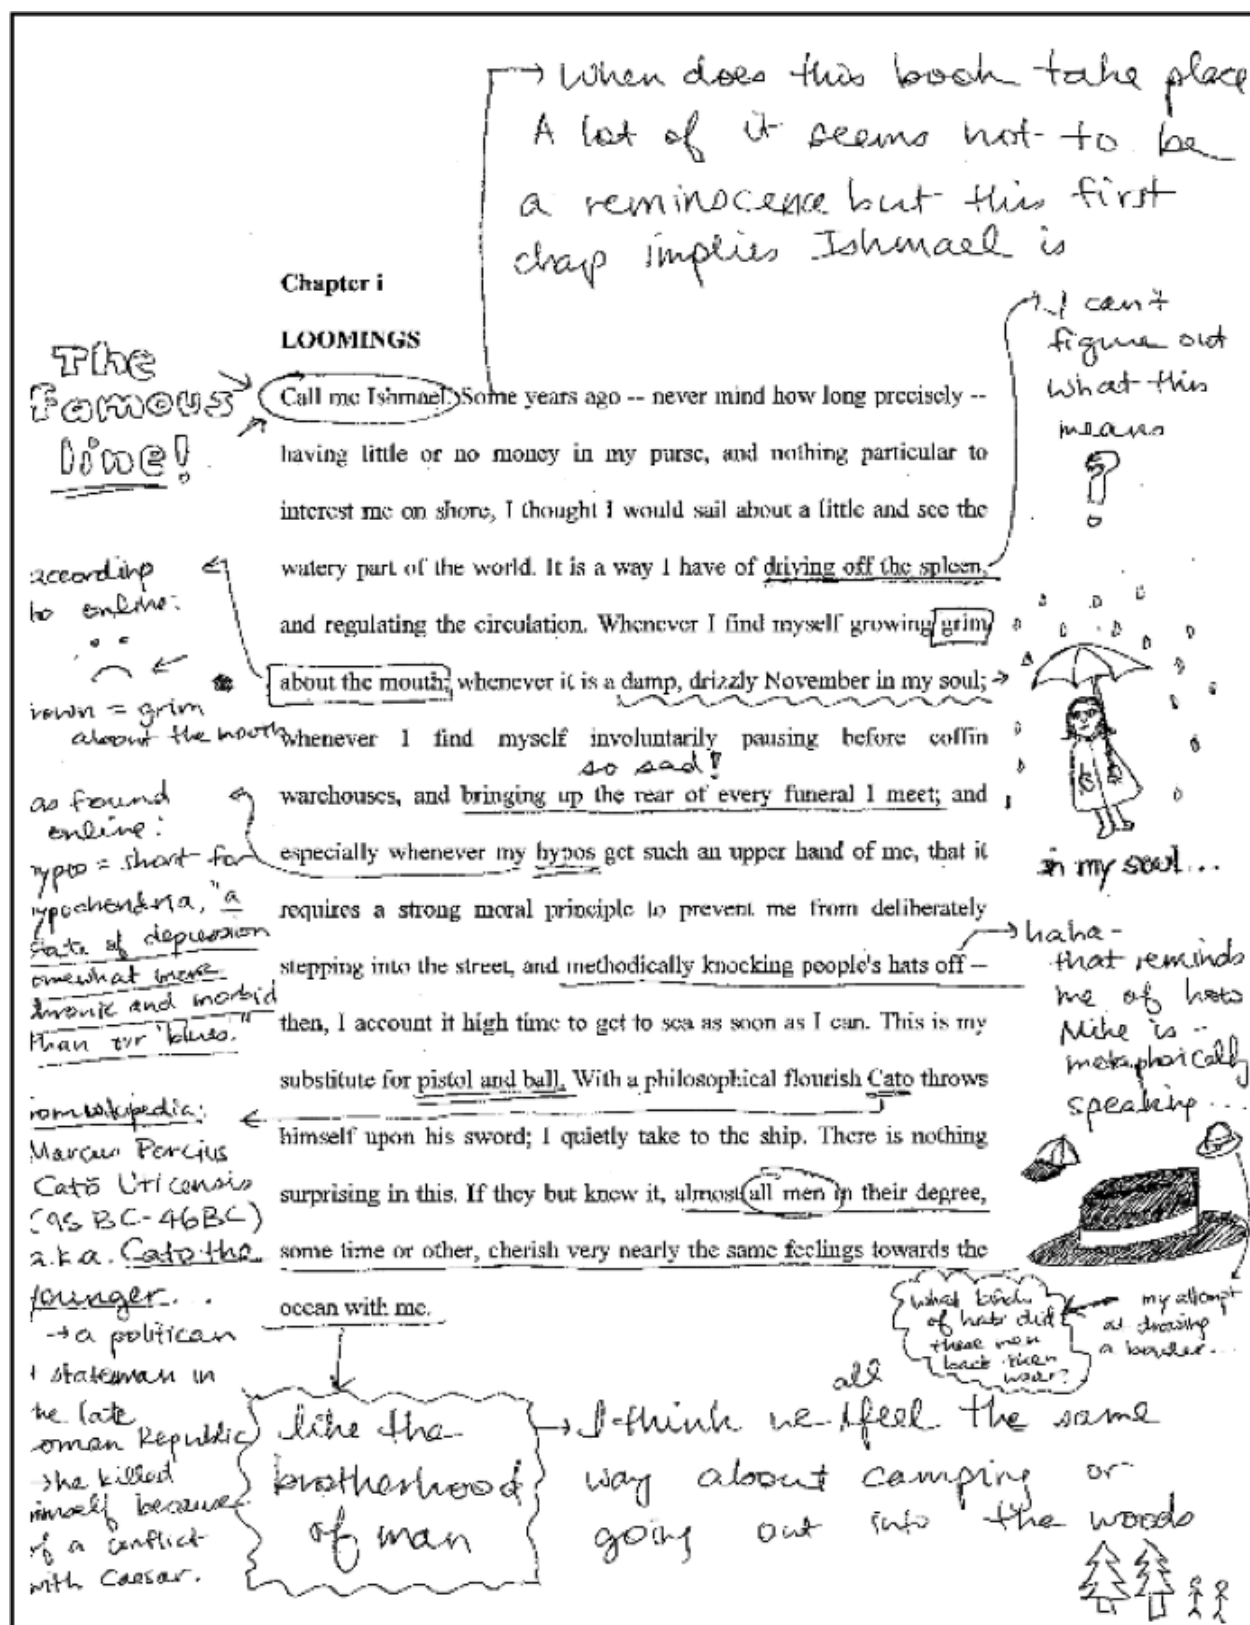 → When does this book take place
A lot of it seems not to be
a reminocence but this first
chap implies Ishmael is
Chapter i
LOOMINGS
The
Famous
line!
Call me Ishmael. Some years ago -- never mind how long precisely --
having little or no money in my purse, and nothing particular to
interest me on shore, I thought I would sail about a little and see the
watery part of the world. It is a way I have of driving off the spleen,
and regulating the circulation. Whenever I find myself growing grim
about the mouth; whenever it is a damp, drizzly November in my soul;
whenever I find myself involuntarily pausing before coffin
so sad!
warehouses, and bringing up the rear of every funeral I meet; and
especially whenever my hypos get such an upper hand of me, that it
requires a strong moral principle to prevent me from deliberately
stepping into the street, and methodically knocking people's hats off --
then, I account it high time to get to sea as soon as I can. This is my
substitute for pistol and ball. With a philosophical flourish Cato throws
himself upon his sword; I quietly take to the ship. There is nothing
surprising in this. If they but knew it, almost all men in their degree,
some time or other, cherish very nearly the same feelings towards the
ocean with me.
I can't
figure out
what this
means
?
according
to online:
rown = grim
about the mouth
as found
online:
ypo = short for
ypochendria, "a
state of depression
omewhat more
hronic and morbid
than our 'blues.'"
rom wikipedia:
Marcus Porcius
Cato Uticensis
(95 BC-46BC)
a.k.a. Cato the
younger...
→ a politican
statesman in
he late
oman Republic
→ he killed
imself because
of a conflict
with Caesar.
in my soul...
haha -
that reminds
me of hats
Mike is -
metaphorically
speaking...
what kinds
of hats did
these men
back then
wear?
my attempt
at drawing
a bowler...
like the
brotherhood
of man
→ I think we all feel the same
way about camping or
going out into the woods